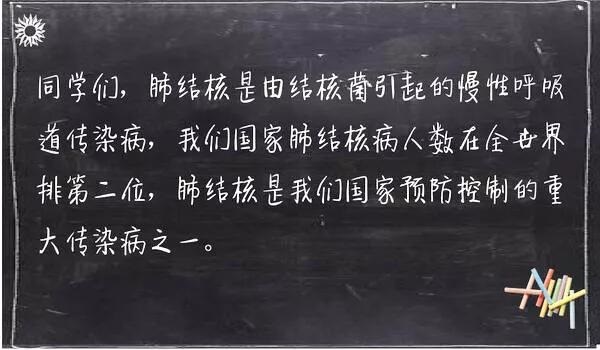 同学们，肺结核是由结核菌引起的慢性呼吸
道传染病，我们国家肺结核病人数在全世界
排第二位，肺结核是我们国家预防控制的重
大传染病之一。